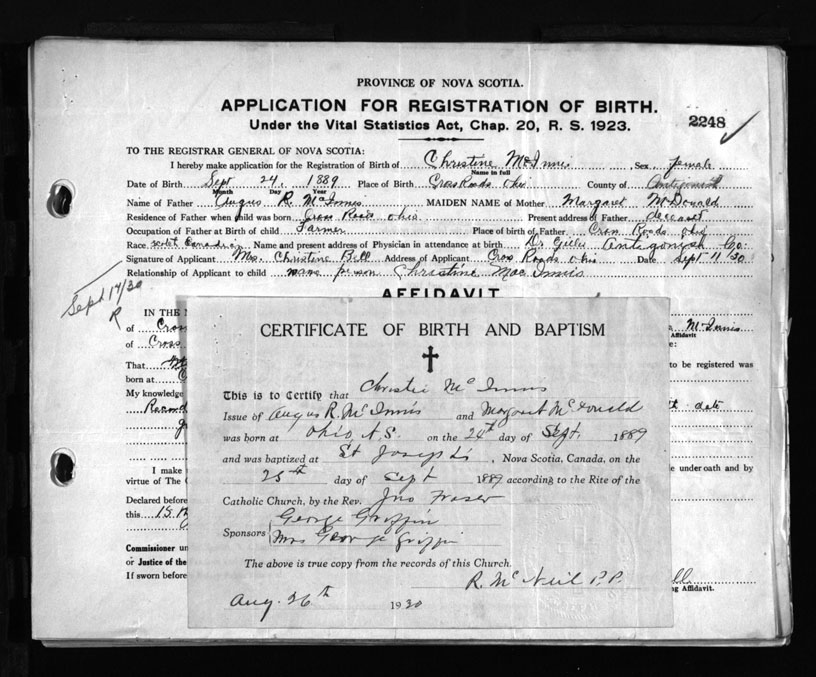 PROVINCE OF NOVA SCOTIA.
APPLICATION FOR REGISTRATION OF BIRTH.
2248
Under the Vital Statistics Act, Chap. 20, R. S. 1923.
TO THE REGISTRAR GENERAL OF NOVA SCOTIA:
I hereby make application for the Registration of Birth of Christine McInnis Sex female
Name in full
Date of Birth Sept 24, 1889 Place of Birth Cross Roads Ohio County of Antigonish
Month Day Year
Name of Father Angus R. McInnis MAIDEN NAME of Mother Margaret McDonald
Residence of Father when child was born Cross Roads Ohio Present address of Father deceased
Occupation of Father at Birth of child Farmer Place of birth of Father Cross Roads Ohio
Race Scotch Canadian Name and present address of Physician in attendance at birth Dr Gillis Antigonish Co.
Signature of Applicant Mrs. Christine Bell Address of Applicant Cross Roads Ohio Date Sept 11 '30
Relationship of Applicant to child Christine MacInnis
Sept 17/30
R
AFFIDAVIT
IN THE
of McInnis
Affidavit
of Cross
That to be registered was
born at
My knowledge date
Record
I make under oath and by
virtue of The
Declared before
this
Commissioner
or Justice of the
If sworn before ng Affidavit.
CERTIFICATE OF BIRTH AND BAPTISM
This is to Certify that Christie McInnis
Issue of Angus R. McInnis and Margaret McDonald
was born at Ohio, N.S. on the 24th day of Sept. 1889
and was baptized at St Joseph's, Nova Scotia, Canada, on the
25th day of Sept 1889 according to the Rite of the
Catholic Church, by the Rev. Jno Fraser
George Griffin
Sponsors
Mrs George Griffin
The above is true copy from the records of this Church.
R. McNeil P.P.
Aug. 26th 1930